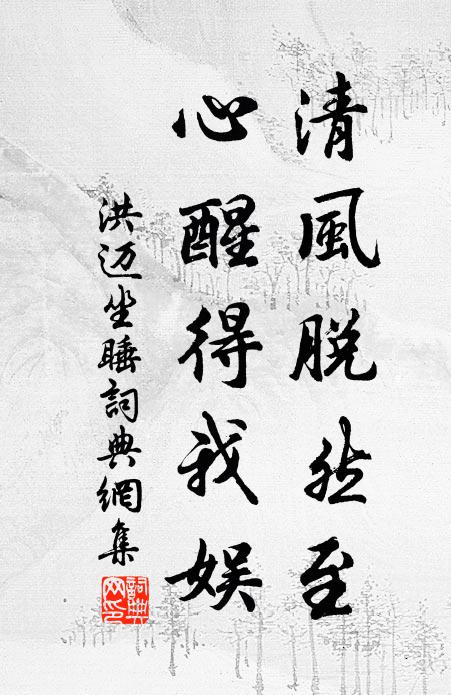 清風脱然至
心醒得我娱
洪迈坐睡詞典網集
詞典網印